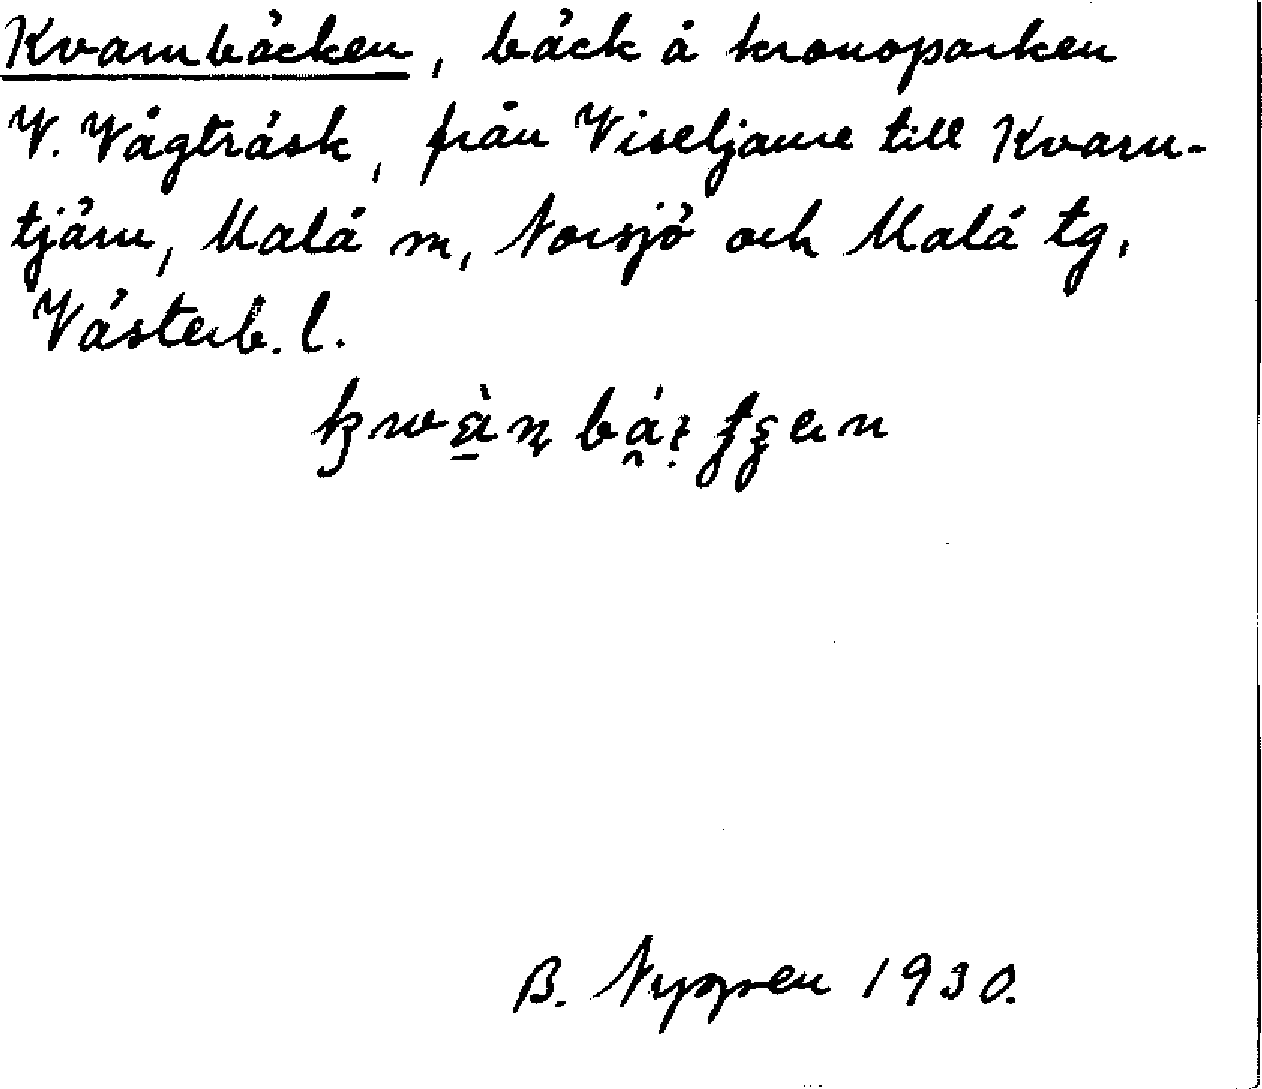 Kvarnbäcken, bäck å kronoparken
V. Vågträsk, från Viseljaure till Kvarn-
tjärn, Malå m, Norsjö och Malå tg,
Västerb. l.
B. Nygren 1930.